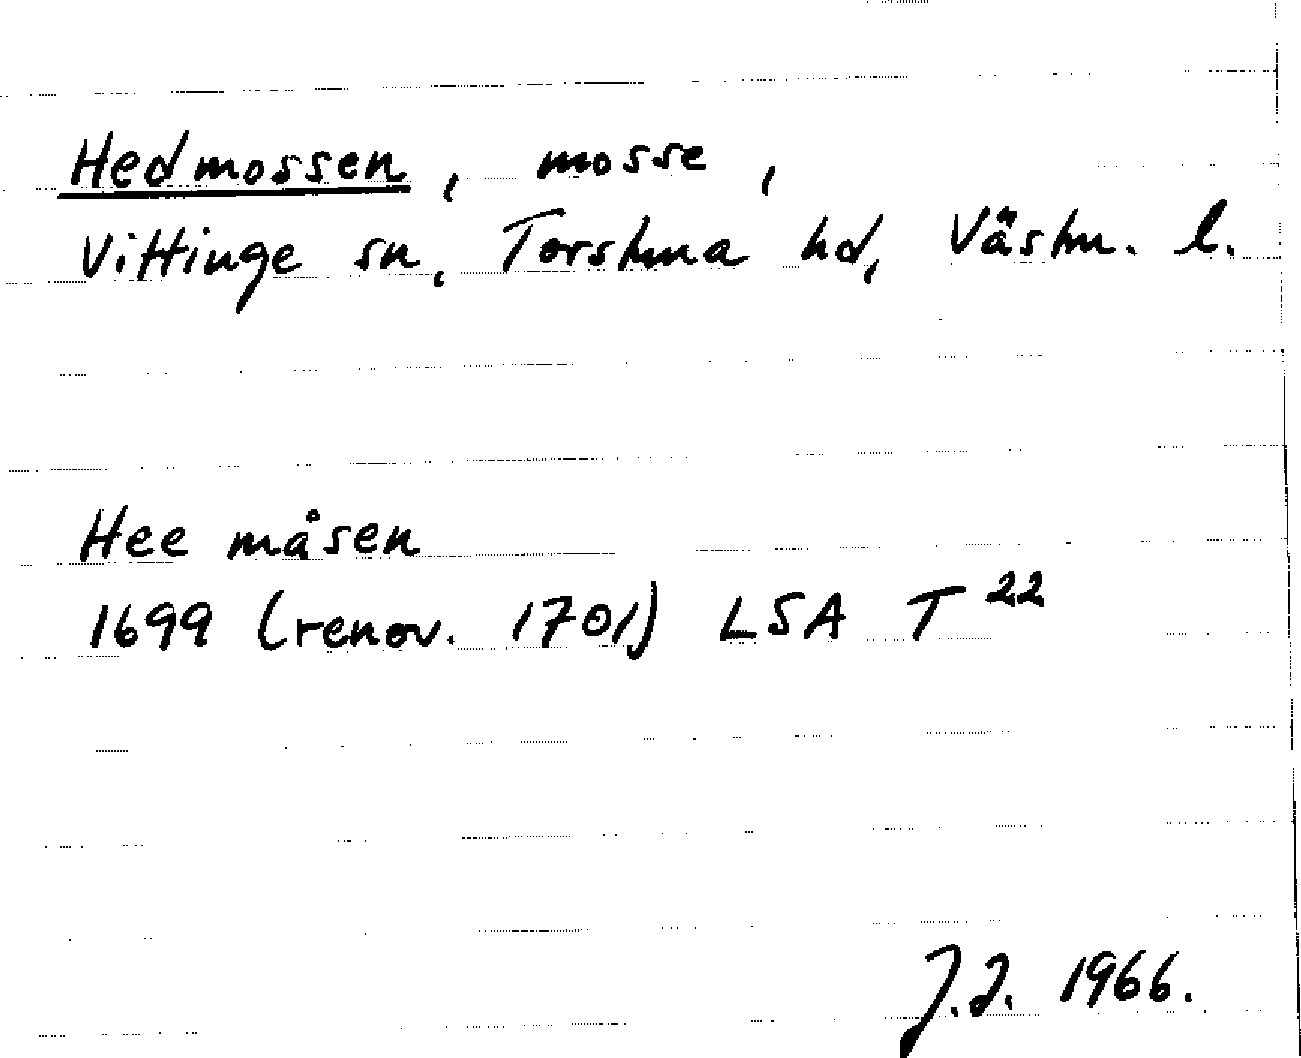 Hedmossen, mosse,
Vittinge sn, Torstuna hd, Västm. l.
Hee måsen
1699 (renov. 1701) LSA T 22
J.J. 1966.